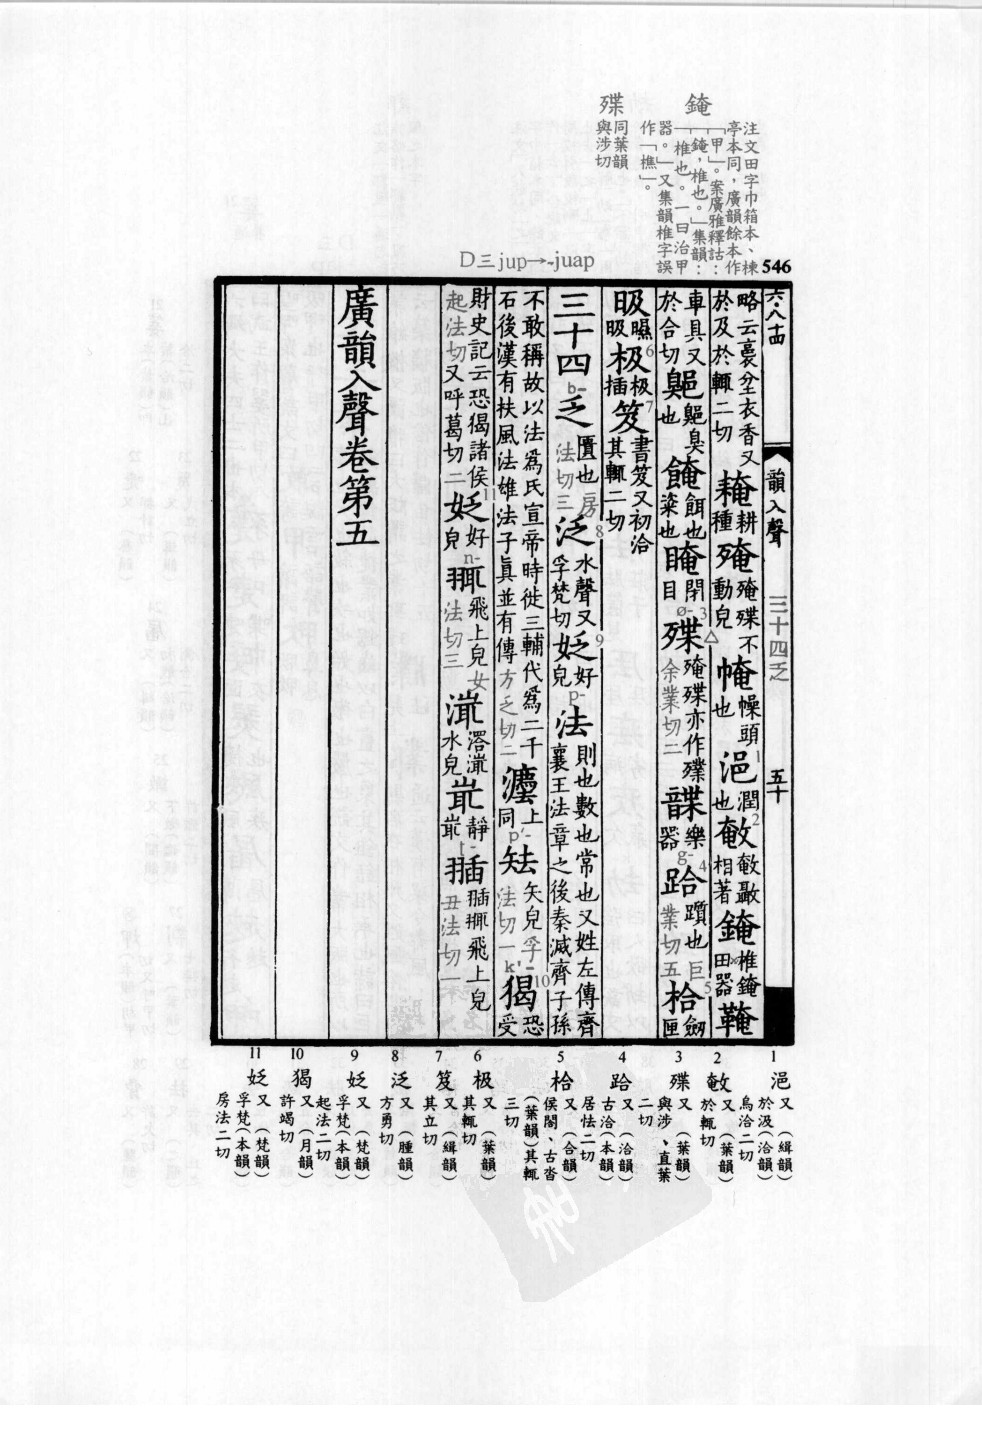 546
鏀
注文田字巾箱本、楝
亭本同，廣韻餘本作
「甲」。案廣雅釋詁：
「䤶，椎也。」集韻：
「椎也。一曰治甲
器。」又集韻椎字誤
作「樵」。
殜
同葉韻
與涉切
D三jup→-juap
六·八十四
韻入聲
三十四乏
五十
略云裛坌衣香又
於及於輒二切
耕種
殗殜不動皃
幧頭也
浥 潤也
敧㪉相著
椎䤶田器
車具又於合切
䶟臭也
餌也䊏也
閉目
殜 殗殜亦作𣩨余業切二
樂器
跲 躓也巨業切五
㭘 劒匣
㫺 㬤
极 极插
笈 書笈又初洽其輒二切
三十四乏 匱也房法切三
泛 水聲又孚梵切
姂 好皃
法 則也數也常也又姓左傳齊襄王法章之後秦滅齊子孫
不敢稱故以法爲氏宣帝時徙三輔代爲二千
石後漢有扶風法雄法子眞並有傳方乏切二
灋 上同
㹤 矢皃孚法切一
猲 恐受
財史記云恐猲諸侯
起法切又呼葛切二
姂 好皃
飛上皃女法切三
水皃
靜
飛上皃丑法切一
廣韻入聲卷第五
1 浥 又（緝韻）於汲（洽韻）烏洽二切
2 又（葉韻）於輒切
3 殜 又（葉韻）與涉、直葉二切
4 跲 又（洽韻）古洽（本韻）居怯二切
5 㭘 又（合韻）侯閤、古沓（葉韻）其輒三切
6 极 又（葉韻）其輒切
7 笈 又（緝韻）其立切
8 泛 又（腫韻）方勇切
9 姂 又（梵韻）孚梵（本韻）起法二切
10 猲 又（月韻）許竭切
11 姂 又（梵韻）孚梵（本韻）房法二切